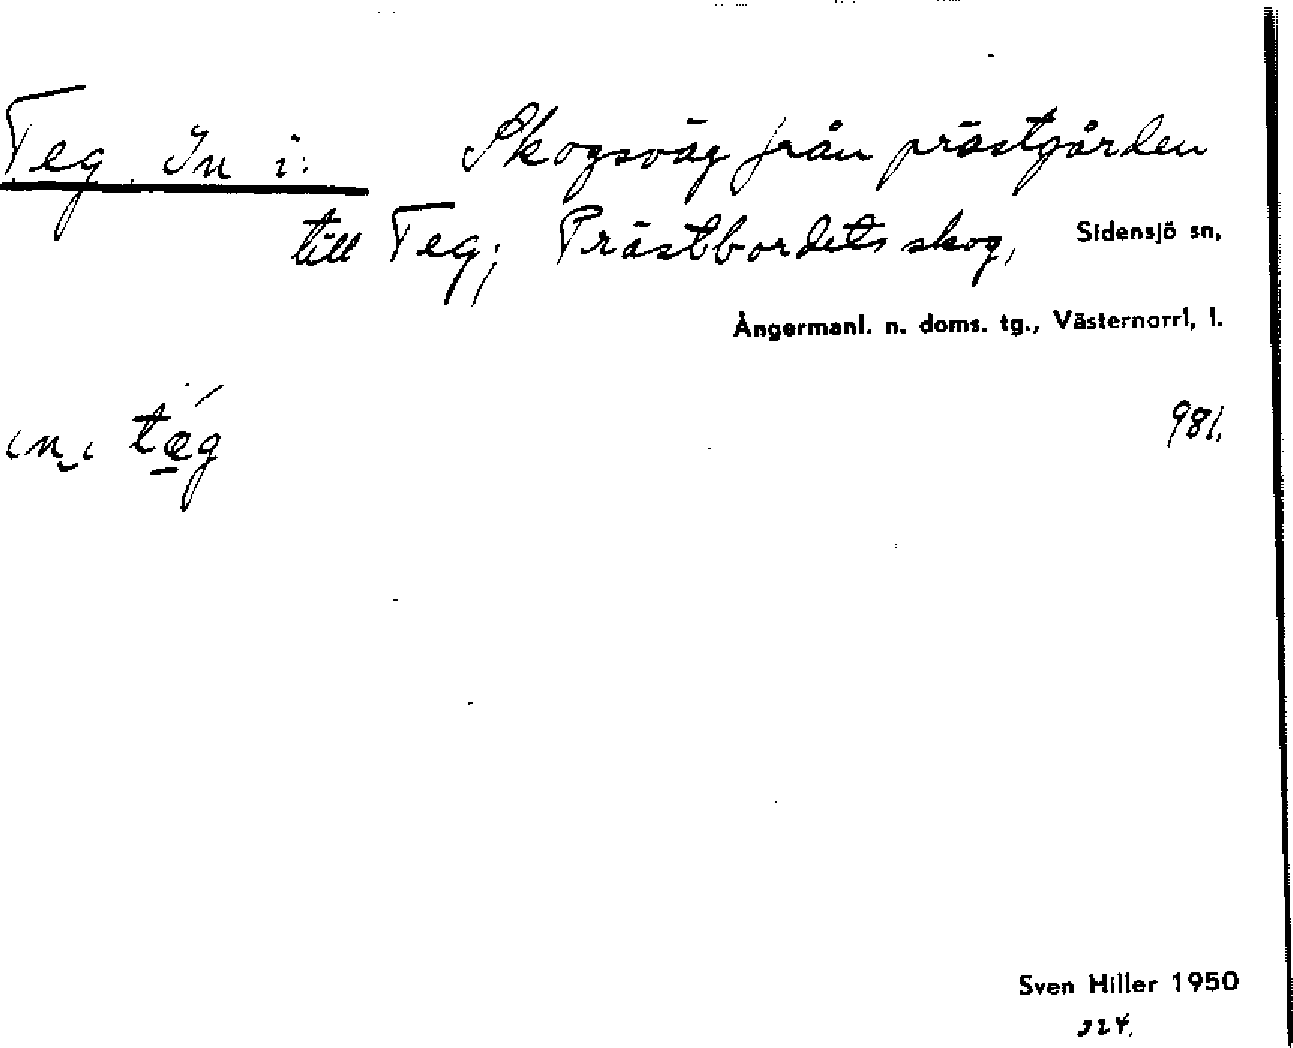 Teg. In i: Skogsväg från prästgården
till Teg; Prästbordets skog, Sidensjö sn,
Ångermanl. n. doms. tg., Västernorrl, l.
981.
ɩn̮ɩ tǽ̲g
Sven Hiller 1950
324.